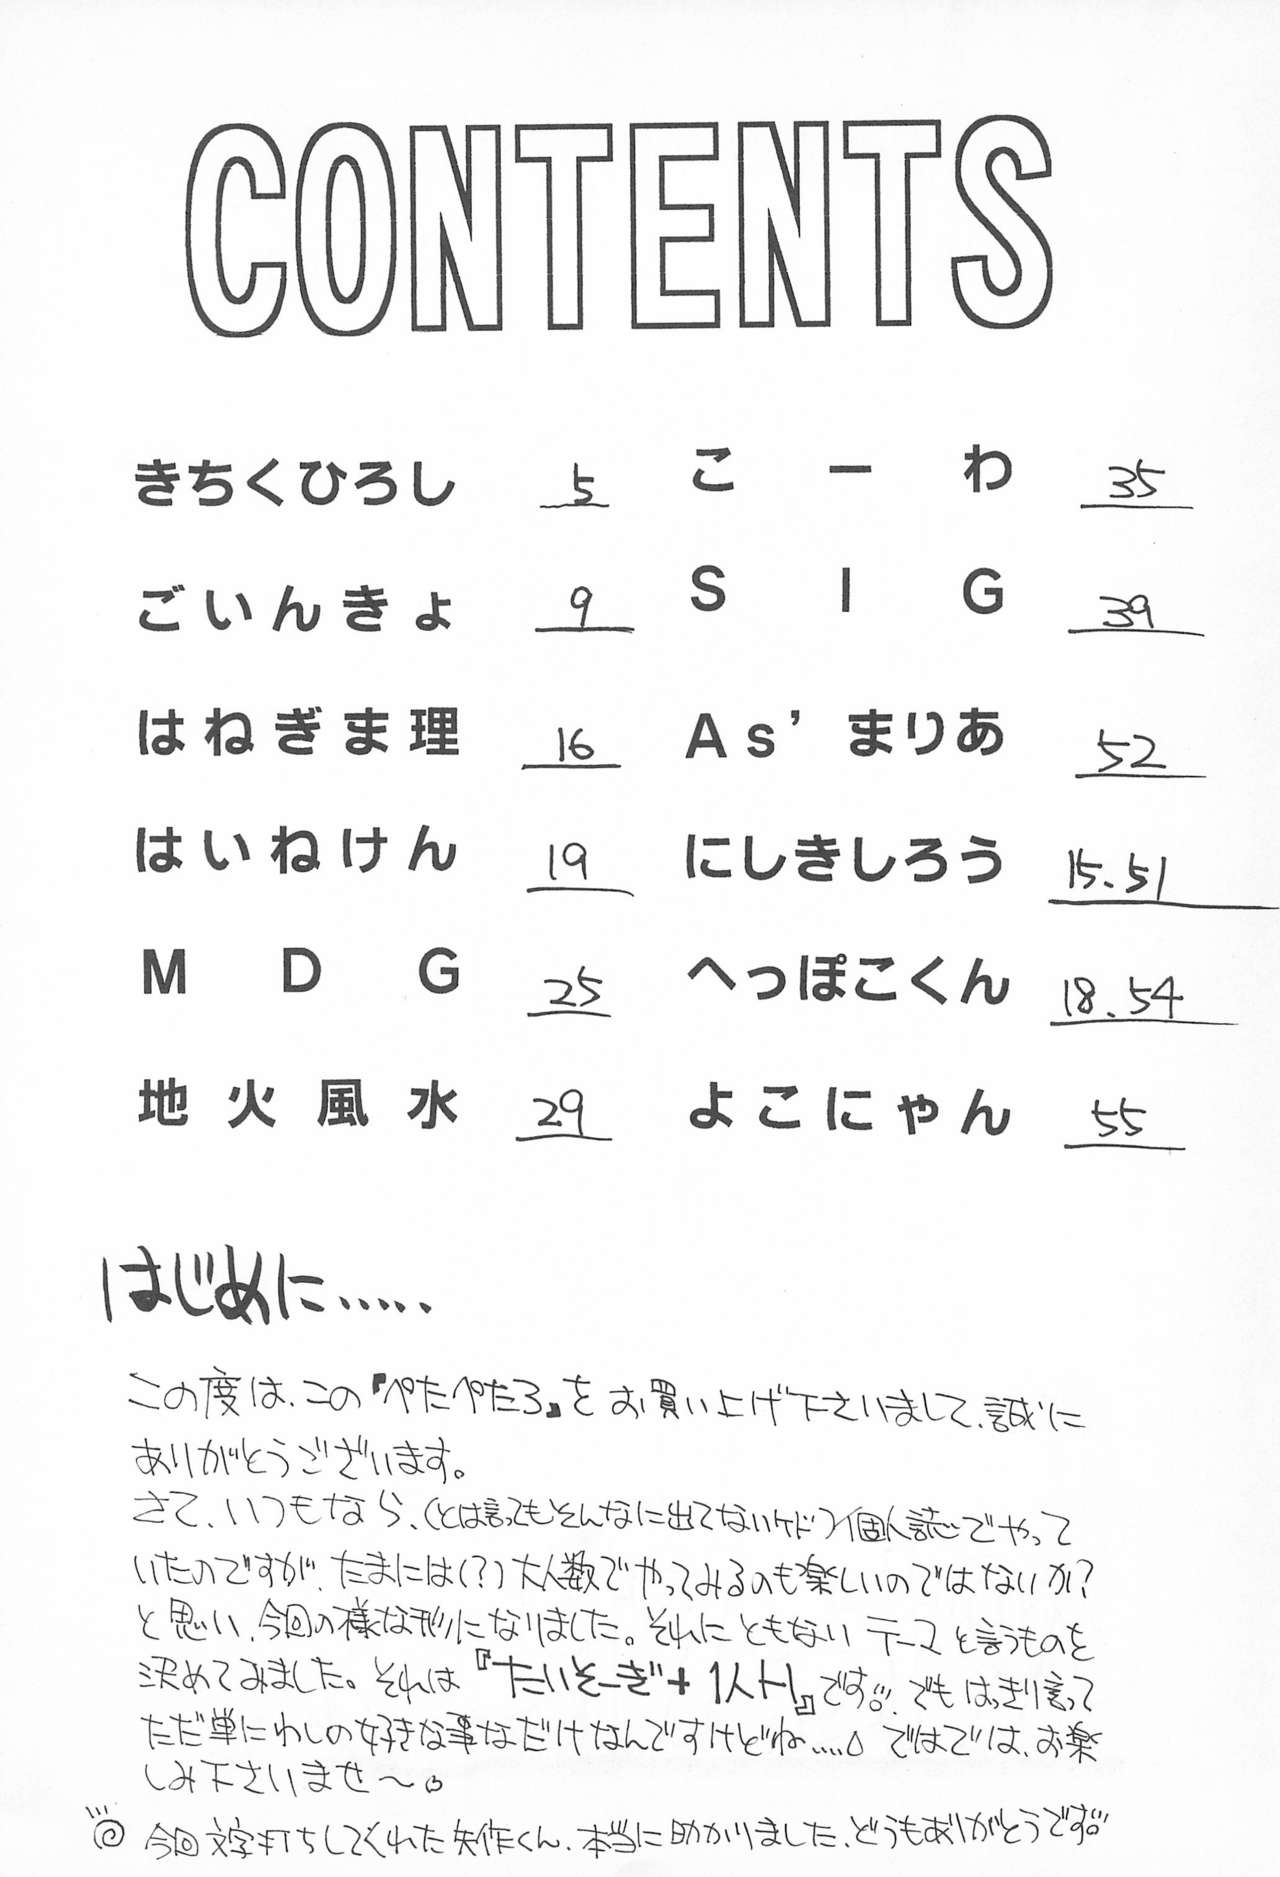 CONTENTS
きちくひろし 5
ごいんきょ 9
はねぎま理 16
はいねけん 19
MDG 25
地火風水 29
こーわ 35
SIG 39
As’まりあ 52
にしきしろう 15.51
へっぽこくん 18.54
よこにゃん 55
はじめに.....
この度は、この『ぺたぺたろ』をお買い上げ下さいまして、誠に
ありがとうございます。
さて、いつもなら、(とは言ってもそんなに出てないケド)個人誌でやって
いたのですが、たまには(?)大人数でやってみるのも楽しいのではないか?
と思い、今回の様な形になりました。それにともない テーマと言うものを
決めてみました。それは『たいそーぎ+1人H』です!! でもはっきり言って
ただ単にわしの好きな事なだけなんですけどね..... ではでは、お楽
しみ下さいませ〜
今回文字打ちしてくれた矢作くん、本当に助かりました、どうもありがとうです!!